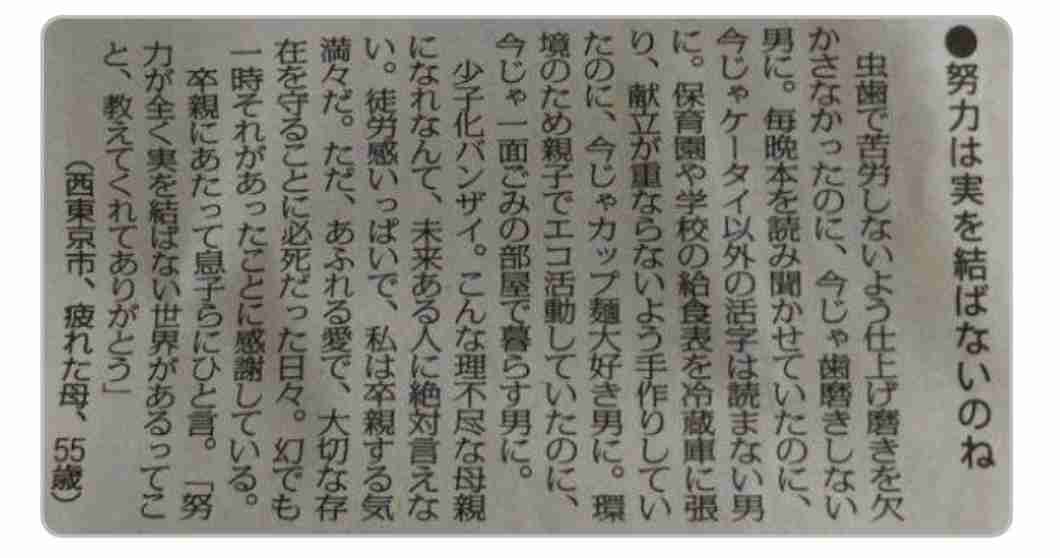 ●努力は実を結ばないのね
虫歯で苦労しないよう仕上げ磨きを欠
かさなかったのに、今じゃ歯磨きしない
男に。毎晩本を読み聞かせていたのに、
今じゃケータイ以外の活字は読まない男
に。保育園や学校の給食表を冷蔵庫に張
り、献立が重ならないよう手作りしてい
たのに、今じゃカップ麺大好き男に。環
境のため親子でエコ活動していたのに、
今じゃ一面ごみの部屋で暮らす男に。
少子化バンザイ。こんな理不尽な母親
になれなんて、未来ある人に絶対言えな
い。徒労感いっぱいで、私は卒親する気
満々だ。ただ、あふれる愛で、大切な存
在を守ることに必死だった日々。幻でも
一時それがあったことに感謝している。
卒親にあたって息子らにひと言。「努
力が全く実を結ばない世界があるってこ
と、教えてくれてありがとう」
（西東京市、疲れた母、55歳）